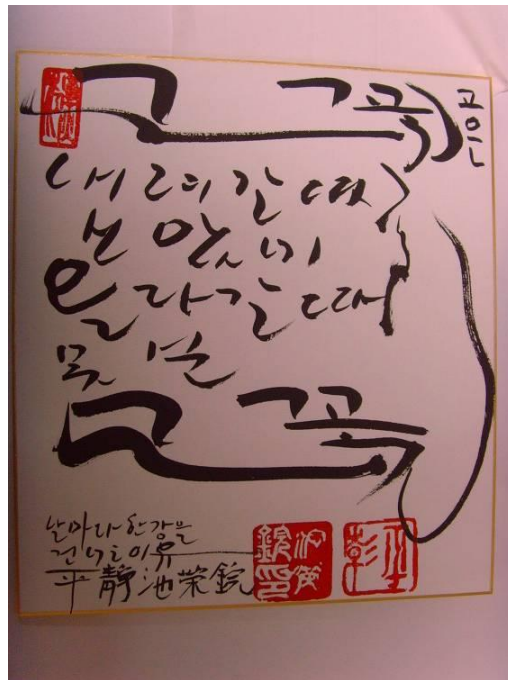 그 꽃
고은
내려갈 때
보았네
올라갈 때
못 본
그 꽃
날마다 한강을
건너는 이유
平靜 池榮